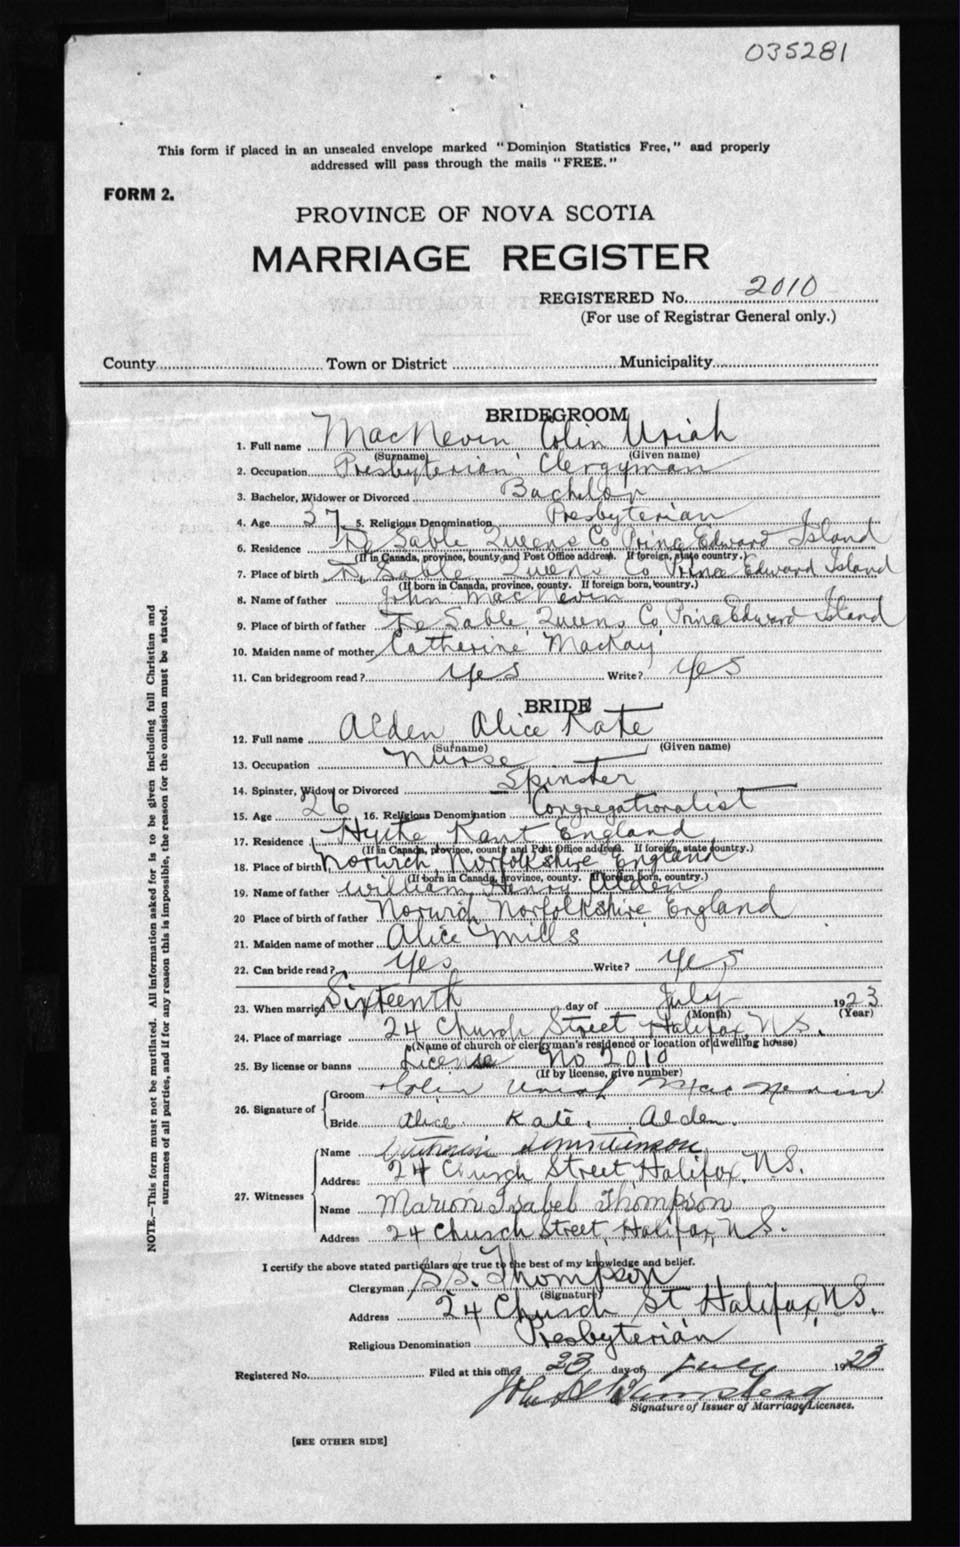 035281
This form if placed in an unsealed envelope marked "Dominion Statistics Free," and properly
addressed will pass through the mails "FREE."
FORM 2.
PROVINCE OF NOVA SCOTIA
MARRIAGE REGISTER
REGISTERED No. 2010
(For use of Registrar General only.)
County Town or District Municipality
BRIDEGROOM
1. Full name MacNevin Colin Uriah
(Surname) (Given name)
2. Occupation Presbyterian Clergyman
3. Bachelor, Widower or Divorced Bachelor
4. Age 37 5. Religious Denomination Presbyterian
6. Residence De Sable Queens Co Prince Edward Island
(If in Canada, province, county and Post Office address. If foreign, state country.)
7. Place of birth De Sable Queens Co Prince Edward Island
(If born in Canada, province, county. If foreign born, country.)
8. Name of father John MacNevin
9. Place of birth of father De Sable, Queens Co, Prince Edward Island
10. Maiden name of mother Catherine MacKay
11. Can bridegroom read? Yes Write? Yes
BRIDE
12. Full name Alden Alice Kate
(Surname) (Given name)
13. Occupation Nurse
14. Spinster, Widow or Divorced Spinster
15. Age 26 16. Religious Denomination Congregationalist
17. Residence Hythe Kent England
(If in Canada, province, county and Post Office address. If foreign, state country.)
18. Place of birth Norwich, Norfolkshire, England
(If born in Canada, province, county. If foreign born, country.)
19. Name of father William Henry Alden
20 Place of birth of father Norwich Norfolkshire, England
21. Maiden name of mother Alice Mills
22. Can bride read? Yes Write? Yes
23. When married Sixteenth day of July 1923
(Month) (Year)
24. Place of marriage 24 Church Street Halifax, N.S.
(Name of church or clergyman's residence or location of dwelling house)
25. By license or banns License No 2010
(If by license, give number)
26. Signature of Groom Colin Uriah MacNevin
Bride Alice Kate Alden.
27. Witnesses
Name
Address 24 Church Street, Halifax, N.S.
Name Marion Isabel Thompson
Address 24 Church Street, Halifax, N.S.
I certify the above stated particulars are true to the best of my knowledge and belief.
Clergyman Thompson
(Signature)
Address 24 Church St Halifax, N.S.
Religious Denomination Presbyterian
Registered No. Filed at this office 23 day of July 1923
John
Signature of Issuer of Marriage Licenses.
[SEE OTHER SIDE]
NOTE.—This form must not be mutilated. All information asked for is to be given including full Christian and
surnames of all parties, and if for any reason this is impossible, the reason for the omission must be stated.